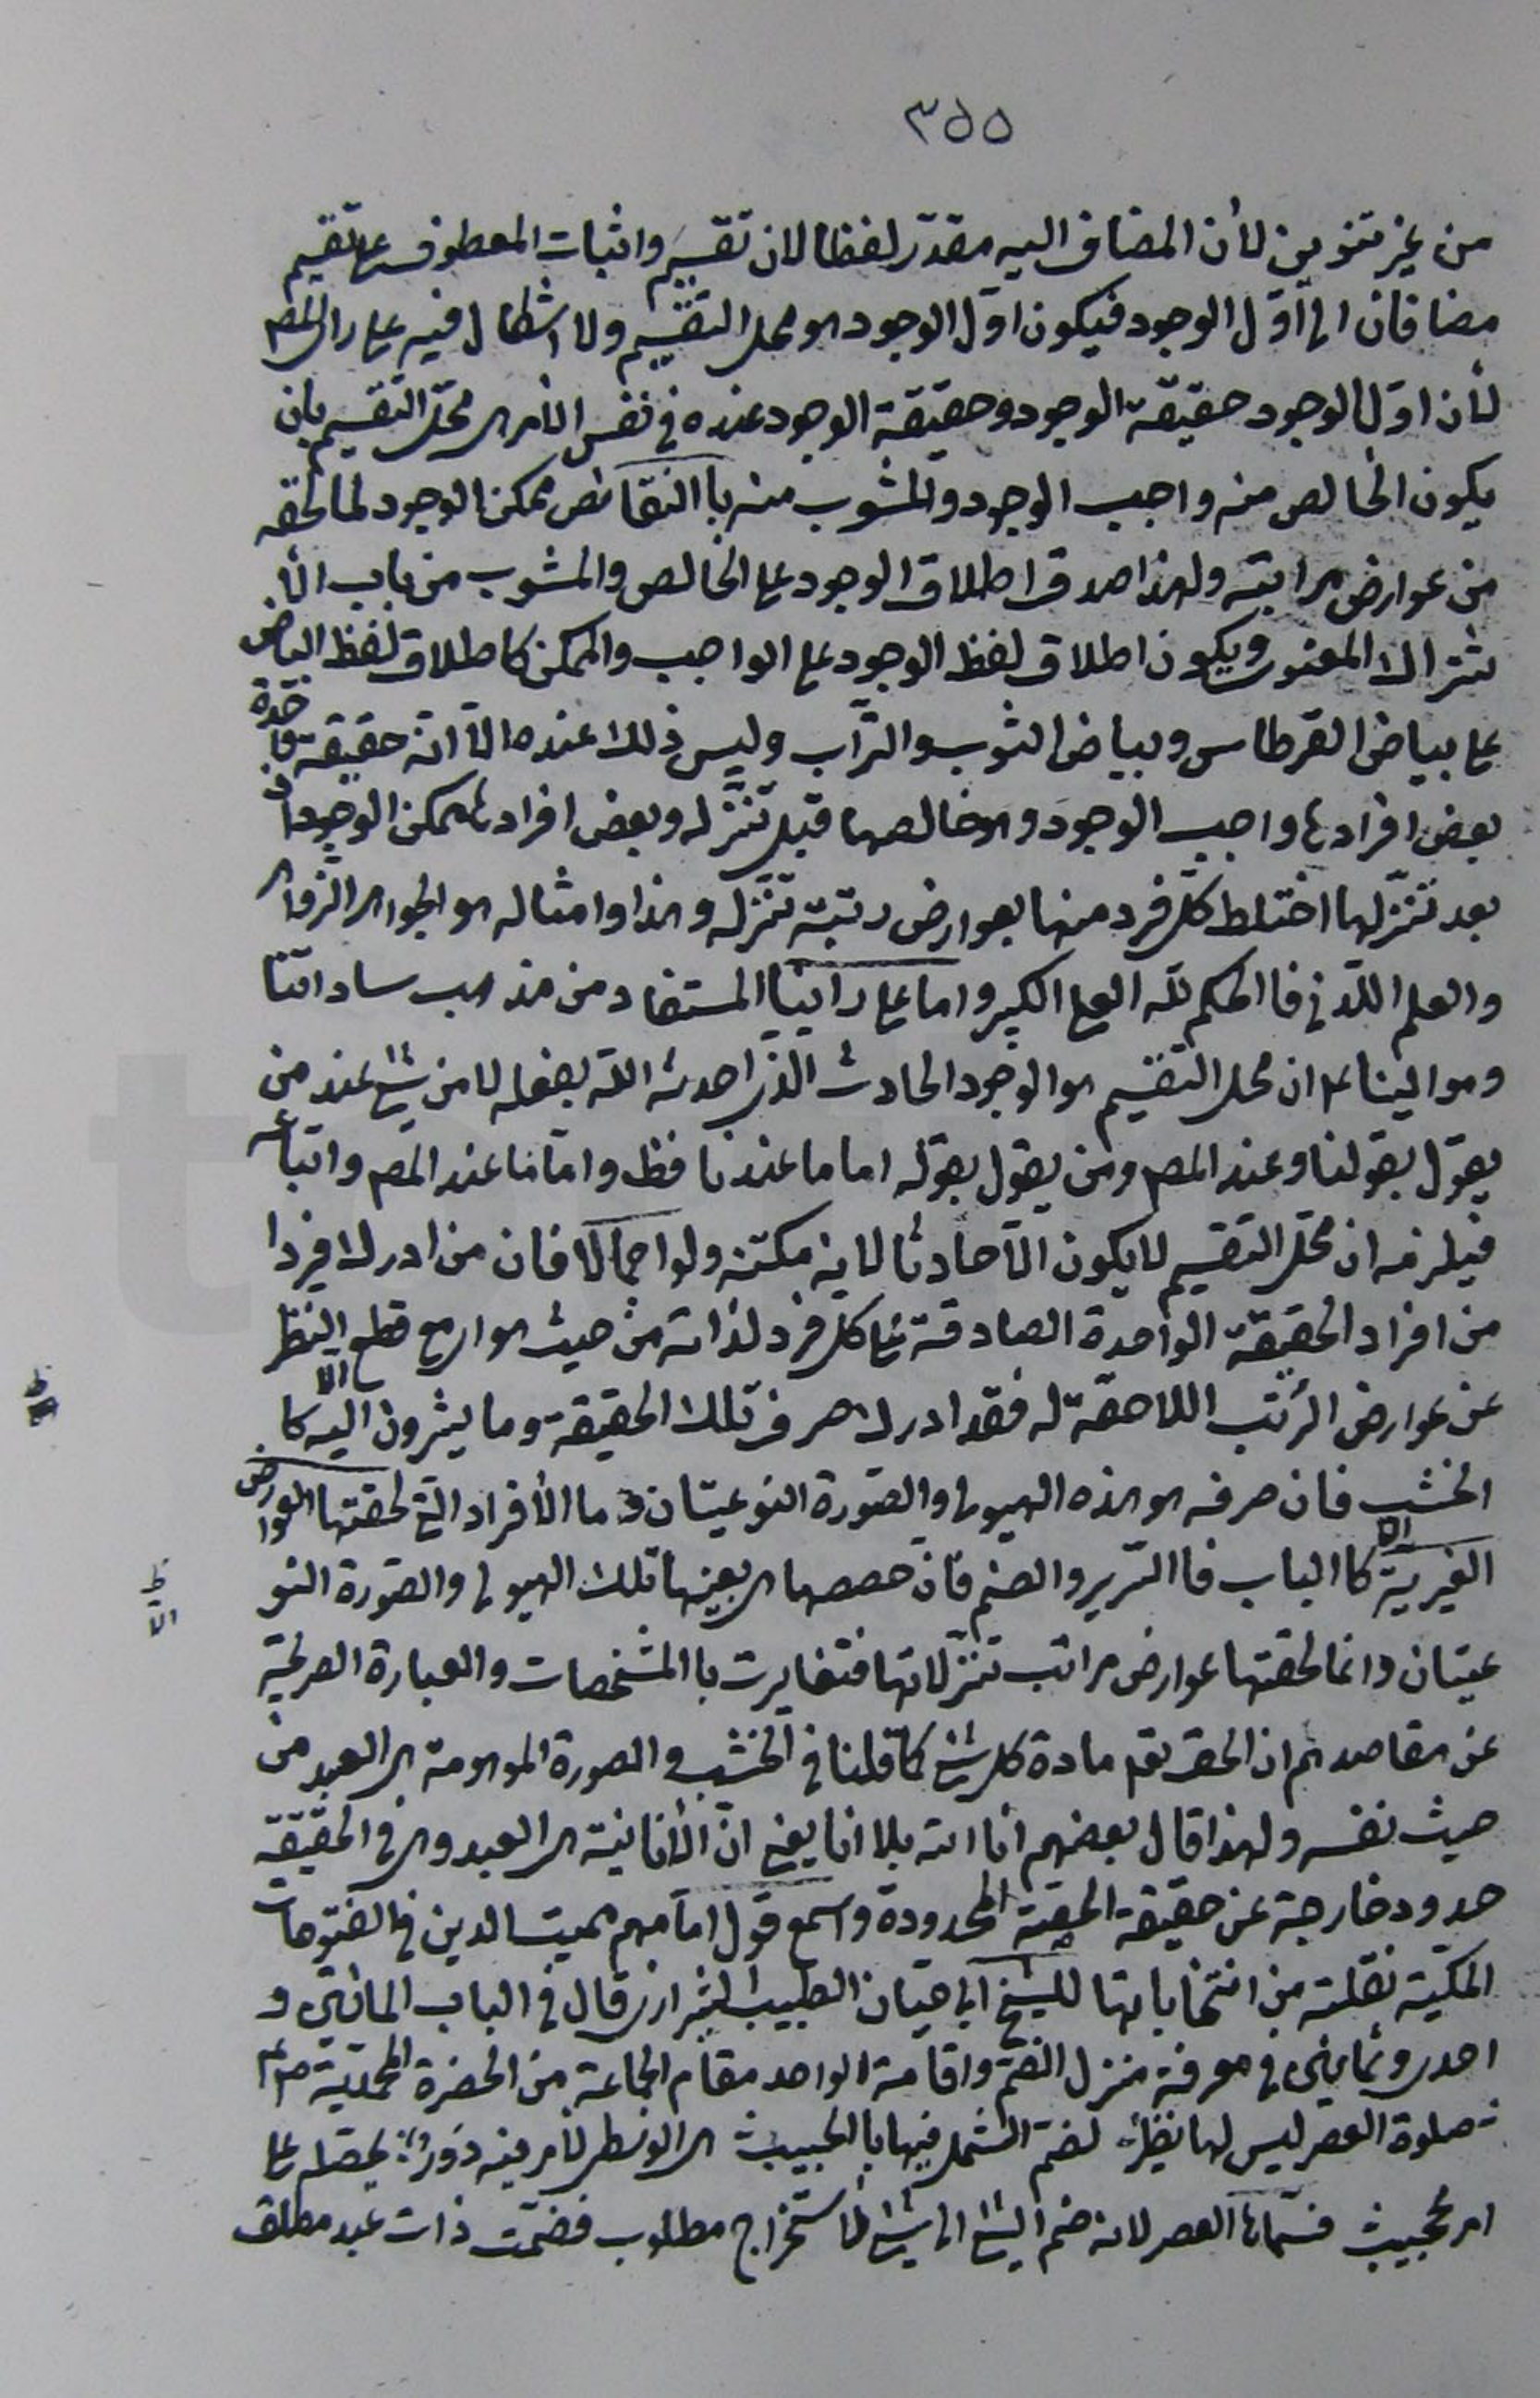 ٣٥٥
من غير تنوين لأن المضاف اليه مقدّر لفظا لان تقسيم واثبات المعطوف عليه تقسيم
مضافان الى اوّل الوجود فيكون اوّل الوجود هو محل التقسيم ولا اشكال فيه على راى المصـ
لأن اوّل الوجود حقيقة الوجود وحقيقة الوجود عنده فى نفس الأمر هى محلّ التقسيم بان
يكون الخالص منه واجب الوجود والمشوب منه باالنقائص ممكن الوجود لما لحقه
من عوارض مراتبه ولهذا صدق اطلاق الوجود على الخالص والمشوب من باب الأ
شتراك المعنوى ويكون اطلاق لفظ الوجود على الواجب والممكن كاطلاق لفظ البياض
على بياض القرطاس وبياض الثوب والتّراب وليس ذلك عنده الّا انّه حقيقة واحدة
بعض افرادها واجب الوجود وهو خالصها قبل تنزّله وبعض افرادها ممكن الوجود
بعد تنزّلها اختلط كلّ فرد منها بعوارض رتبة تنزله وهذا وامثاله هو الجواهر الزواهر
والعلم اللّدنى فاالحكم للّه العلى الكبير واما على راينا المستفاد من مذهب ساداتنا
وموالينا ع ان محل التقسيم هو الوجود الحادث الّذى احدثه اللّه بفعله لا من شئ عند من
يقول بقولنا وعند المصـ ومن يقول بقوله اما ما عندنا فظ واما ما عند المصـ واتباعه
فيلزمه ان محلّ التقسيم لا يكون الّا حادثا لانه مكتنه ولو اجمالا فان من ادرك فردا
من افراد الحقيقة الواحدة الصادقة على كل فرد لذاته من حيث هو اى مع قطع النظر
عن عوارض الرّتب اللاحقة له فقد ادرك صرف تلك الحقيقة وما يشيرون اليه الا كا
الخشب فان صرفه هو هذه الهيولى والصّورة النوعيتان وما الأفراد الّتى لحقتها العوارض
الغيريّة الا كاالباب فاالسّرير والصنم فان حصصها هى بعينها تلك الهيولى والصّورة النو
عيتان وانما لحقتها عوارض مراتب تنزّلاتها فتغايرت باالمشخصات والعبارة الصريحة
عن مقاصدهم ان الحق تعـ مادة كل شئ كما قلنا فى الخشب والصورة الموهومة هى العبد من
حيث نفسه ولهذا قال بعضهم انا اللّه بلا انا يعنى انّ الأنانيّة هى العبد وهى فى الحقيقة
حدود خارجة عن حقيقة الحقيقة المحدودة واسمع قول امامهم مميت الدين فى الفتوحات
المكيّة نقلته من انتخاباتها للشيخ ابى حيّان الطبيب الشيرازى قال فى الباب المائتين و
احدى وثمانين فى معرفة منزل الضّم واقامة الواحد مقام الجماعة من الحضرة المحمّدية ص
صلوة العصر ليس لها نظير، لضم الشمل فيها باالحبيب هى الوسطى لأمر فيه دور، محصّله على
امر عجيب فسمّاها العصر لانه ضم الشئ الى شئ لاستخراج مطلوب فضمّت ذات عبد مطلق
ظ
ظ
الا